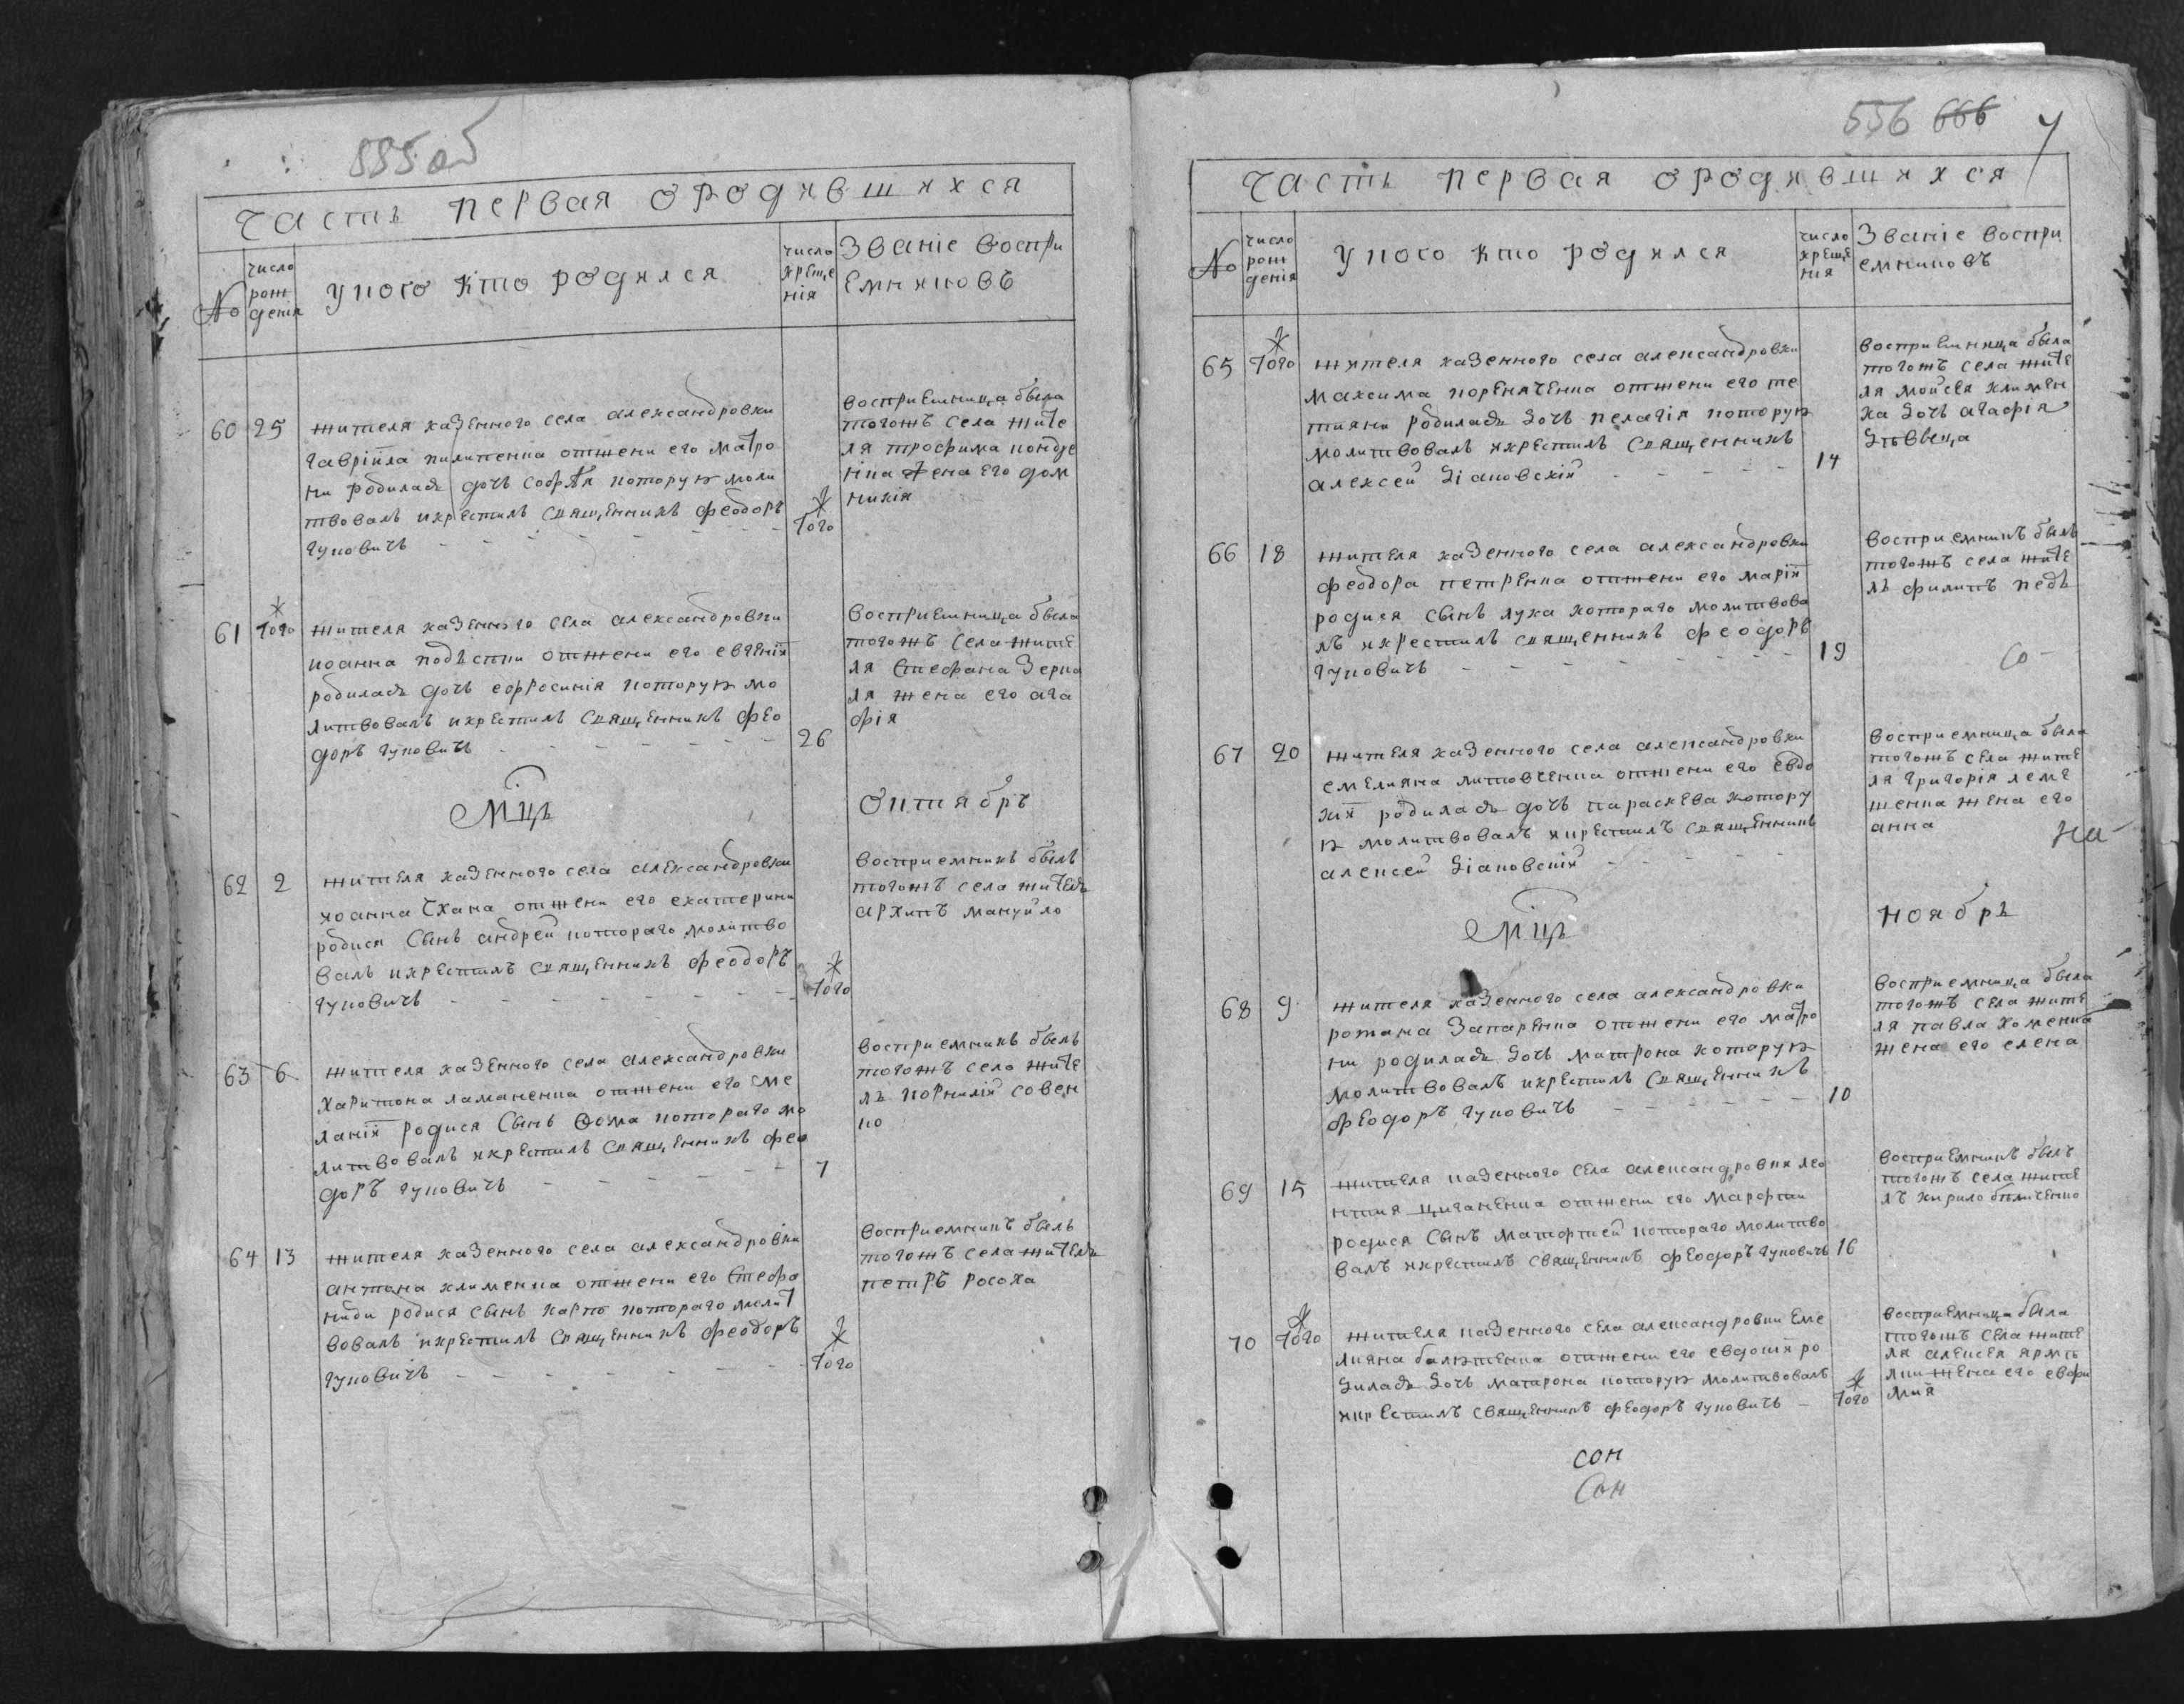 555 об
Часть первая ородившихся
No
число рождения
У кого кто родился
число крещения
Званіе воспри
емниковъ
60 25
жителя казенного села александровки
гавріила пилипенка отжени его матро
ни родилась дочь софія которую моли
твовалъ икрестилъ священникъ феодоръ
чуковичъ
того
восприемница была
тогожъ села жите
ля трофима
жена его дом
никія
61 того
жителя казенного села александровки
иоанна отжени его евгеніи
родилась дочь ефросинія которую мо
литвовалъ икрестилъ священникъ фео
доръ чуковичъ
26
восприемница была
тогожъ села жите
ля стефана
ля жена его ага
фія
Мцъ октябръ
62 2
жителя казенного села александровки
иоанна чхана отжени его екатерини
родися сынъ андрей котораго молитво
валъ икрестилъ священникъ феодоръ
чуковичъ
того
восприемникъ былъ
тогожъ села житель
архипъ мануйло
63 6
жителя казенного села александровки
харитона ламаненка отжени его еме
ланіи родися сынъ Ѳома котораго мо
литвовалъ икрестилъ священникъ фео
доръ чуковичъ
7
восприемникъ былъ
тогожъ села жите
ль корнилій совен
ко
64 13
жителя казенного села александровки
антона клименка отжени его стефа
ниди родися сынъ карпъ котораго молит
вовалъ икрестилъ священникъ феодоръ
чуковичъ
того
восприемникъ былъ
тогожъ села житель
петръ росоха
556 666
7
Часть первая ородившихся
No
число рождения
У кого кто родился
число крещения
Званіе воспри
емниковъ
65 того
жителя казенного села александровки
максима кореняченка отжени его те
тияни родилась дочь пелагія которую
молитвовалъ икрестилъ священникъ
алексей діановскій
14
восприемница была
тогожъ села жите
ля мойсея климен
ка дочь агафія
дѣвица
66 18
жителя казенного села александровки
феодора петренка отжени его маріи
родися сынъ лука котораго молитвова
лъ икрестилъ священникъ феодоръ
чуковичъ
19
восприемникъ былъ
тогожъ села жите
ль филипъ
со
67 20
жителя казенного села александровки
емелияна литовченка отжени его евдо
кіи родилась дочь параскева котору
ю молитвовалъ икрестилъ священникъ
алексей діановскій
восприемница была
тогожъ села жите
ля григорія леме
шенка жена его
анна
на
Мцъ ноябръ
68 9
жителя казенного села александровки
романа запаренка отжени его матро
ни родилась дочь матрона которую
молитвовалъ икрестилъ священникъ
феодоръ чуковичъ
10
восприемница была
тогожъ села жите
ля павла хоменка
жена его елена
69 15
жителя казенного села александровки лео
нтия циганенка отжени его марфи
родися сынъ матфтей котораго молитво
валъ икрестилъ священникъ феодоръ чуковичъ
16
восприемникъ былъ
тогожъ села жите
лъ кирило биличенко
70 того
жителя казенного села александровки еме
лияна отжени его евдокія ро
дилась дочь матрона которую молитвовалъ
икрестилъ священникъ феодоръ чуковичъ
того
восприемница была
тогожъ села жите
ля алексея
жена его евфи
мия
сон
сон